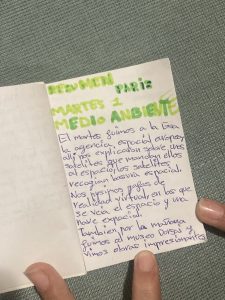 RESUMEN PARIS
MARTES 1
MEDIO AMBIENTE
El martes fuimos a la Esa
la agencia espacial europea
allí nos explicaron sobre unos
satélites que mandan ellos
al espacio, los satélites
recogian basura espacial.
Nos pusimos gafas de
realidad virtual en los que
se veía el espacio y una
nave espacial.
Tambien por la mañana
fuimos al museo Dorsay y
vimos obras impresionantes